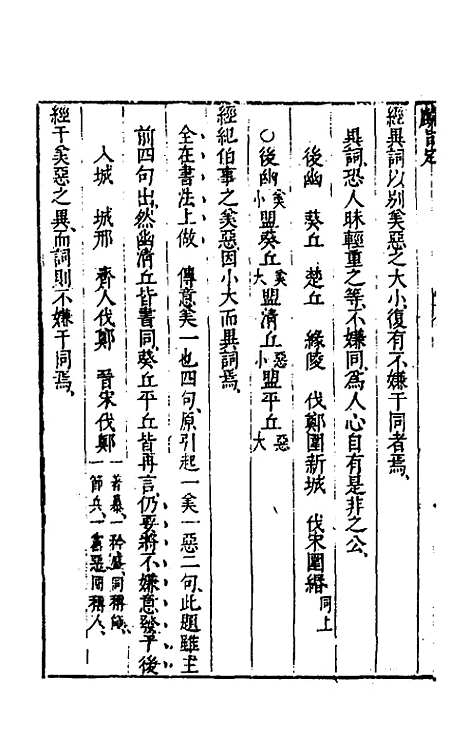 經異詞以別美惡之大小復有不嫌于同者焉、
異詞、恐人昧輕重之等、不嫌同、爲人心自有是非之公、
後幽　葵丘　楚丘　緣陵　伐鄭圍新城　伐宋圍緡同上
○後幽美小盟葵丘美大盟濟丘惡小盟平丘惡大
經紀伯事之美惡、因小大而異詞焉、
全在書法上做　傳意美一也四句、原引起一美一惡二句、此題雖主
前四句出、然幽濟丘皆書同、葵丘平丘皆再言、仍要將不嫌意發于後
人城　城邢　齊人伐鄭　晉宋伐鄭一著暴、一矜盛、同稱師、一節兵、一書惡、同稱人、
經于美惡之異、而詞則不嫌于同焉、